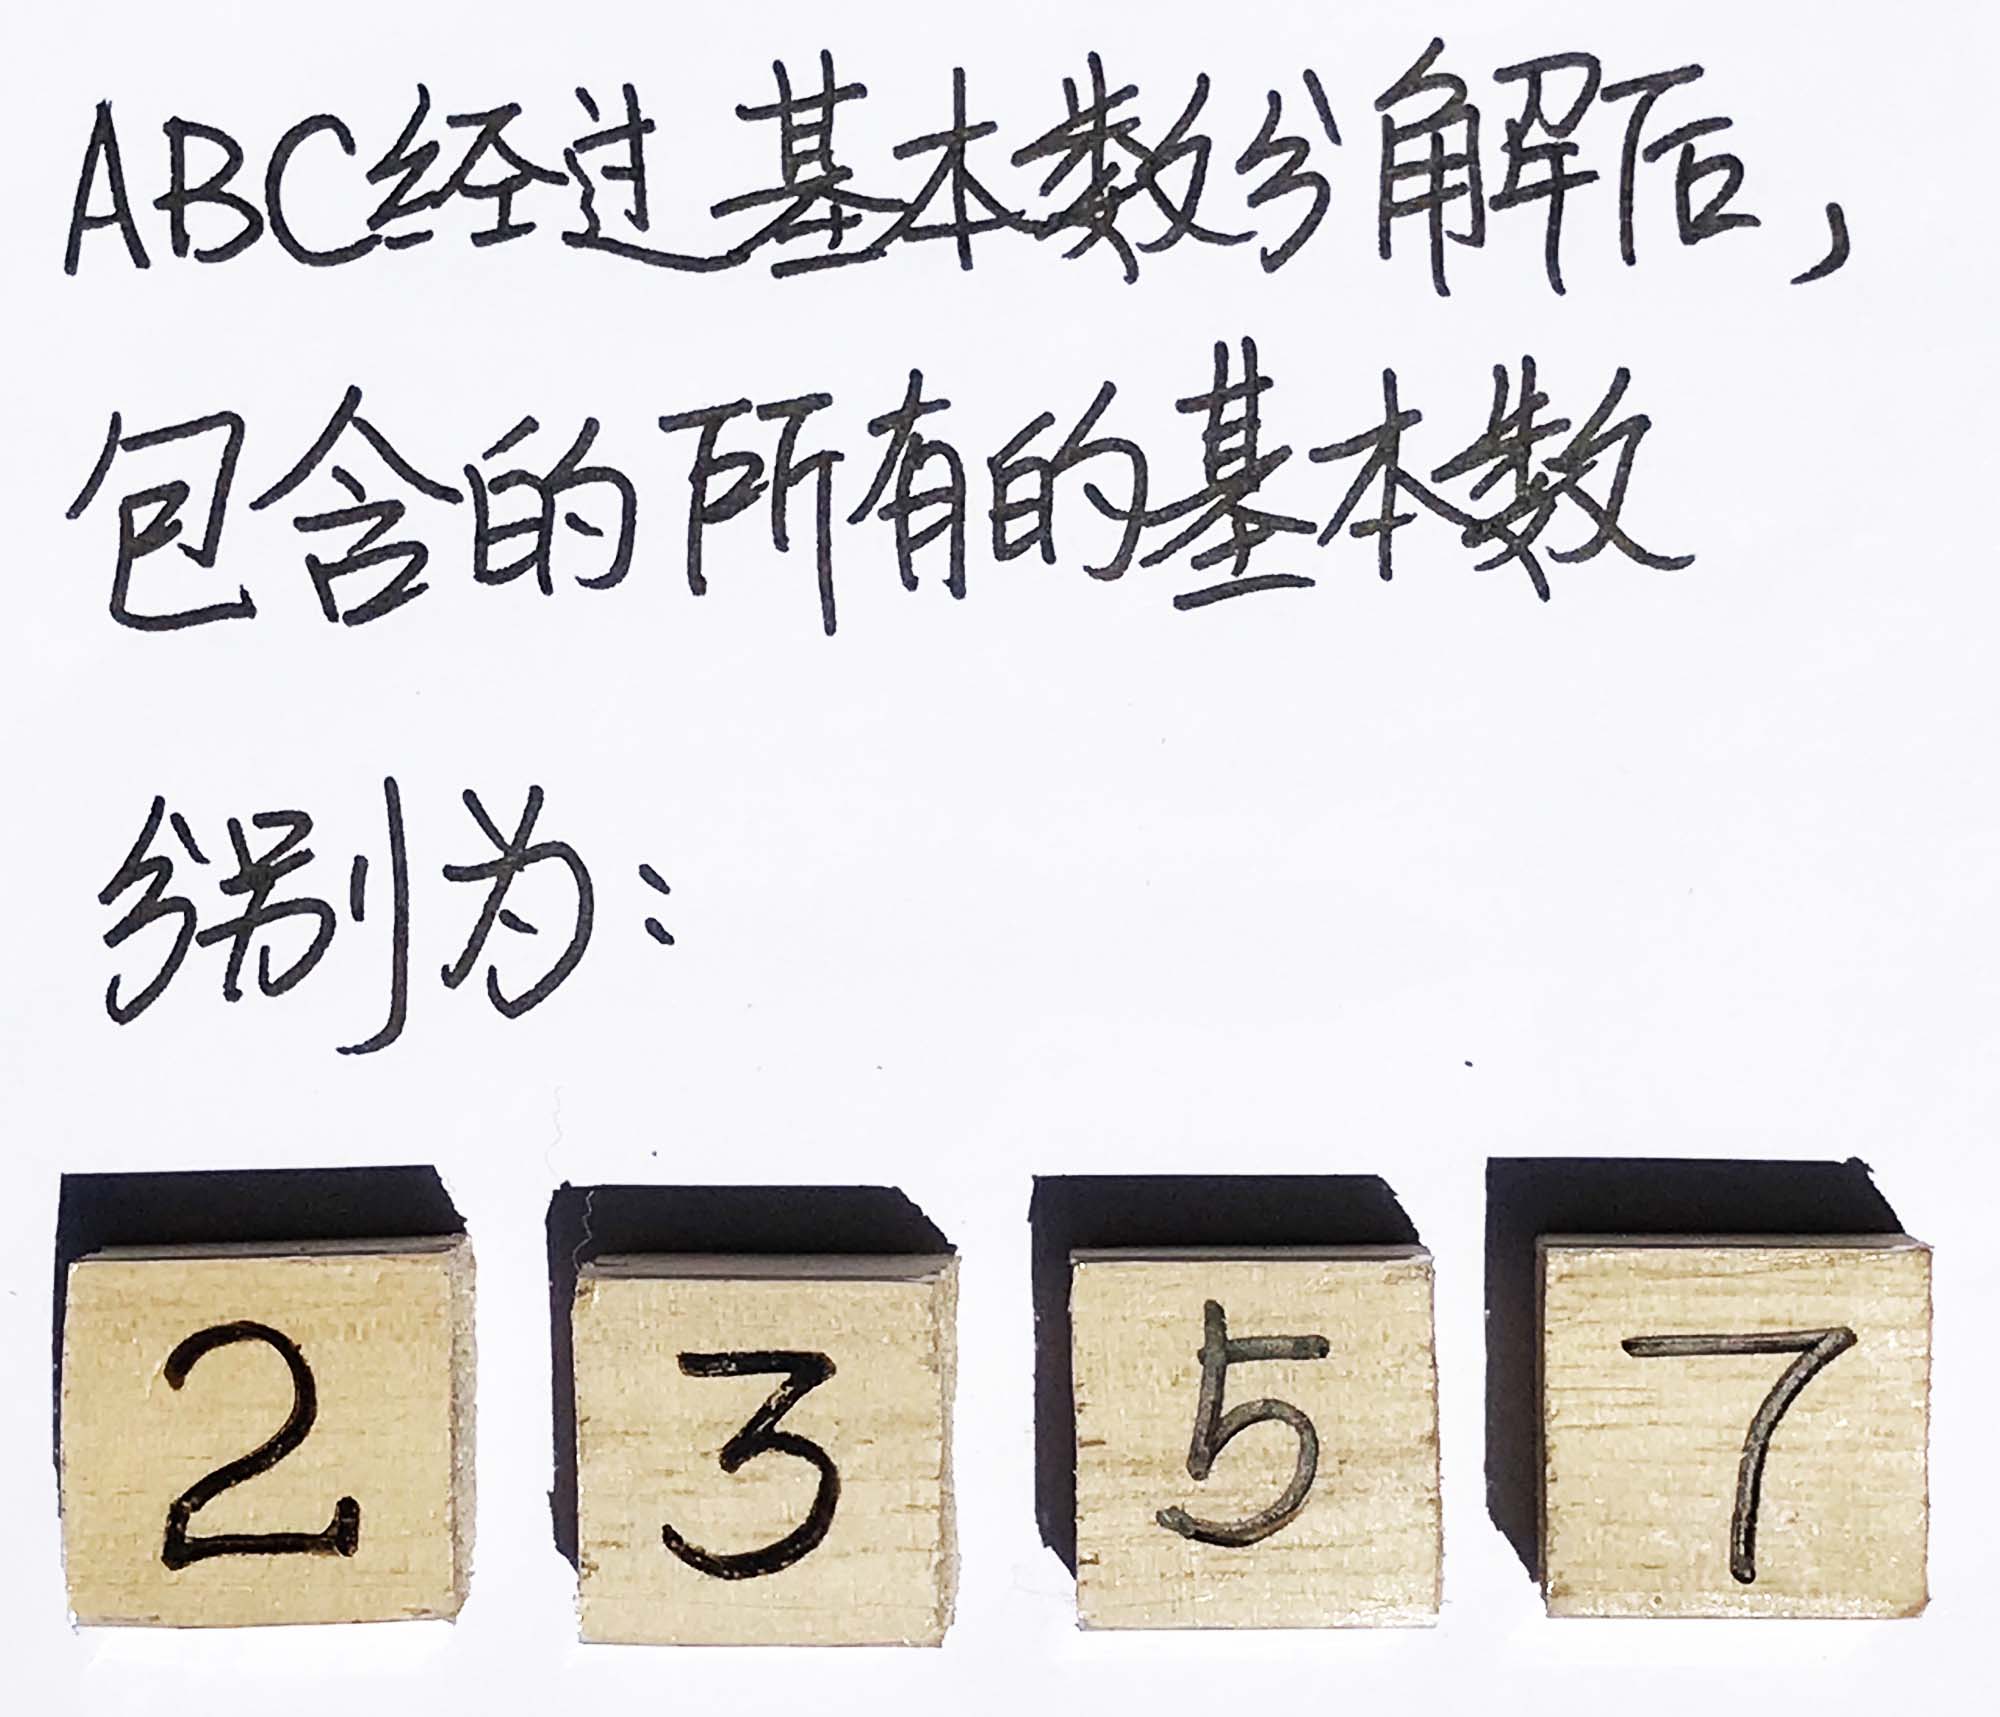 ABC经过基本数分解后，
包含的所有的基本数
分别为：
2 3 5 7